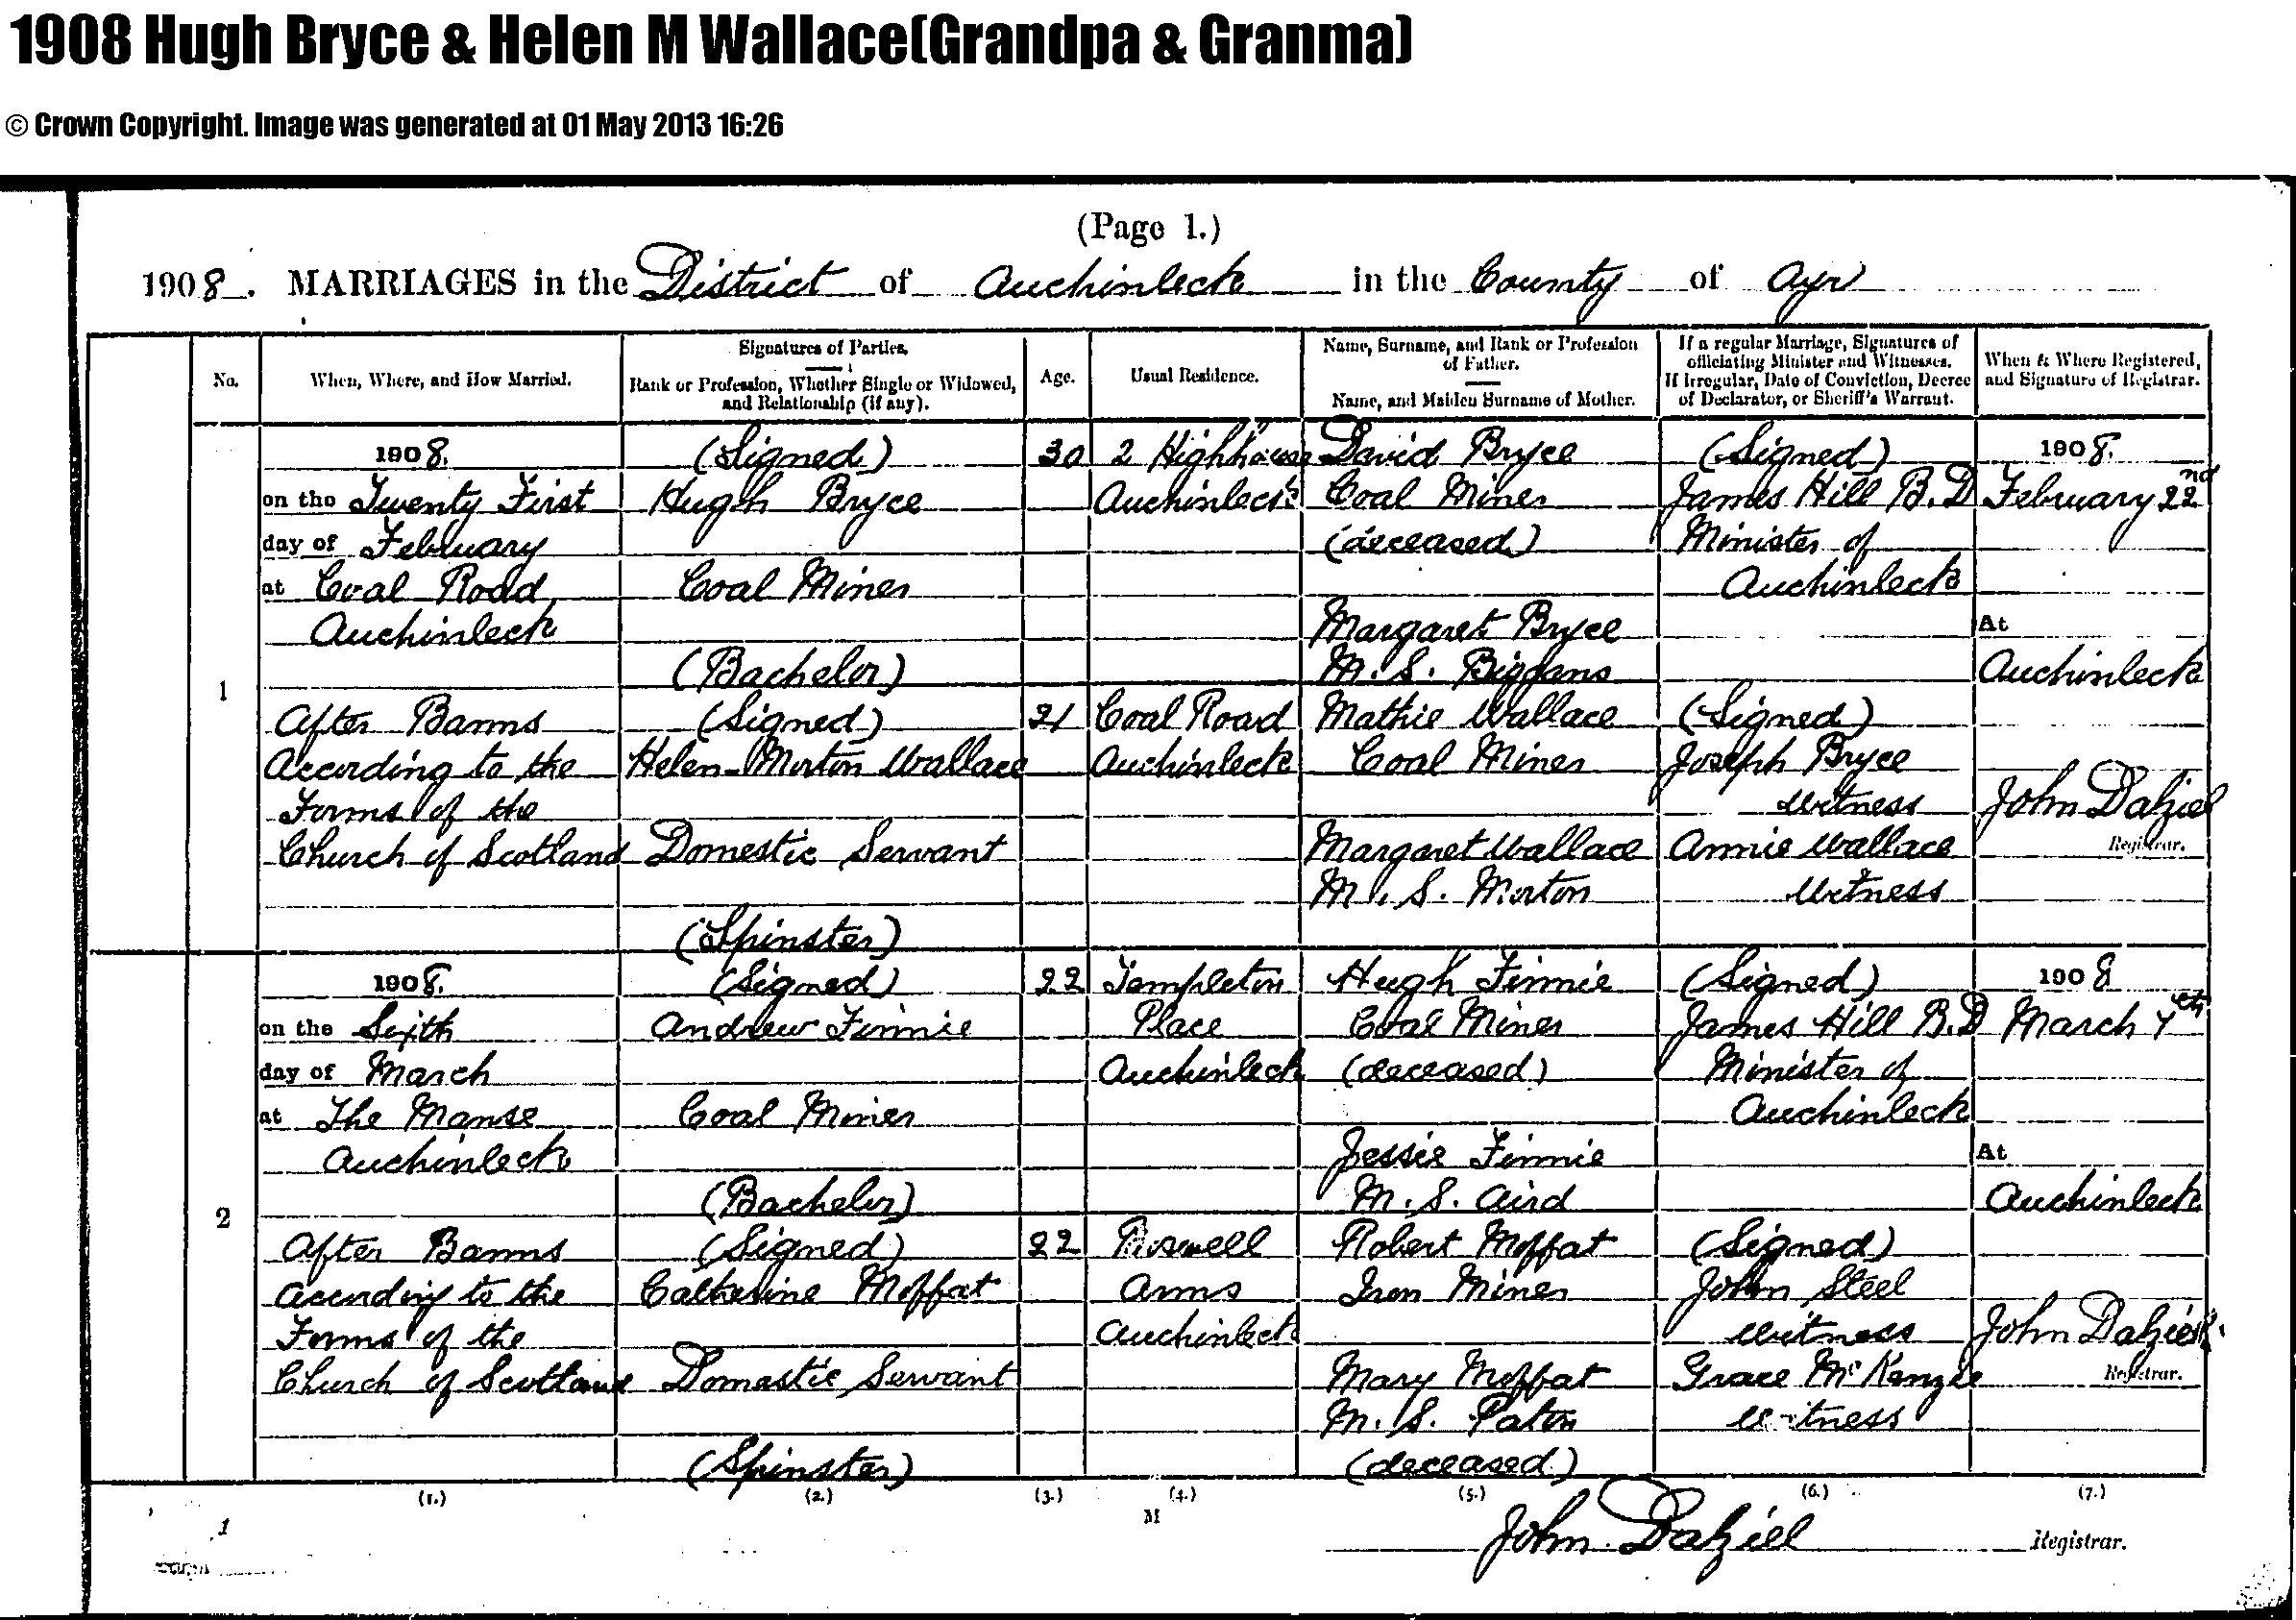 1908 Hugh Bryce & Helen M Wallace(Grandpa & Granma)
© Crown Copyright. Image was generated at 01 May 2013 16:26
(Page 1.)
1908. MARRIAGES in the District of Auchinleck in the County of Ayr
No.
When, Where, and How Married.
Signatures of Parties.
Rank or Profession, Whether Single or Widowed,
and Relationship (if any).
Age.
Usual Residence.
Name, Surname, and Rank or Profession
of Father.
Name, and Maiden Surname of Mother.
If a regular Marriage, Signatures of
officiating Minister and Witnesses.
If irregular, Date of Conviction, Decree
of Declarator, or Sheriff's Warrant.
When & Where Registered,
and Signature of Registrar.
1
1908.
on the Twenty First
day of February
at Coal Road
Auchinleck
After Banns
According to the
Forms of the
Church of Scotland
(Signed)
Hugh Bryce
Coal Miner
(Bachelor)
(Signed)
Helen Morton Wallace
Domestic Servant
(Spinster)
30
21
2 Highhouse
Auchinleck
Coal Road
Auchinleck
David Bryce
Coal Miner
(deceased)
Margaret Bryce
M.S. Biggans
Mathie Wallace
Coal Miner
Margaret Wallace
M.S. Morton
(Signed)
James Hill B.D
Minister of
Auchinleck
(Signed)
Joseph Bryce
Witness
Annie Wallace
Witness
1908.
February 22nd
At
Auchinleck
John Dalziel
Registrar.
2
1908.
on the Sixth
day of March
at The Manse
Auchinleck
After Banns
According to the
Forms of the
Church of Scotland
(Signed)
Andrew Finnie
Coal Miner
(Bachelor)
(Signed)
Catherine Moffat
Domestic Servant
(Spinster)
22
22
Templeton
Place
Auchinleck
Arms
Auchinleck
Hugh Finnie
Coal Miner
(deceased)
Jessie Finnie
M.S. Aird
Robert Moffat
Iron Miner
Mary Moffat
M.S. Paton
(deceased)
(Signed)
James Hill B.D
Minister of
Auchinleck
(Signed)
John Steel
Witness
Grace McKenzie
Witness
1908
March 7th
At
Auchinleck
John Dalziel
Registrar.
(1.) (2.) (3.) (4.) (5.) (6.) (7.)
1
M
John Dalziel Registrar.